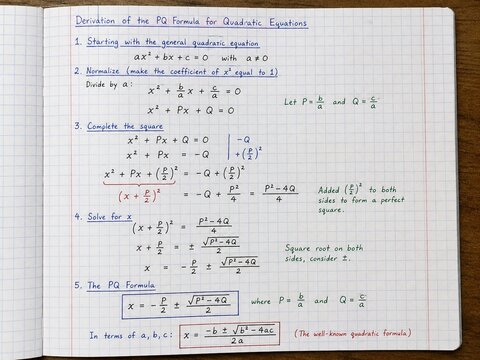 Derivation of the PQ Formula for Quadratic Equations
1. Starting with the general quadratic equation
ax² + bx + c = 0 with a ≠ 0
2. Normalize (make the coefficient of x² equal to 1)
Divide by a:
x² + b/a x + c/a = 0
x² + Px + Q = 0
Let P = b/a and Q = c/a
3. Complete the square
x² + Px + Q = 0 | -Q
x² + Px = -Q | +(P/2)²
x² + Px + (P/2)² = -Q + (P/2)²
(x + P/2)² = -Q + P²/4 = P²-4Q/4
Added (P/2)² to both
sides to form a perfect
square.
4. Solve for x
(x + P/2)² = P²-4Q/4
x + P/2 = ± √P²-4Q/2
x = -P/2 ± √P²-4Q/2
Square root on both
sides, consider ±.
5. The PQ Formula
x = -P/2 ± √P²-4Q/2 where P = b/a and Q = c/a
In terms of a, b, c: x = -b ± √b²-4ac/2a (The well-known quadratic formula)